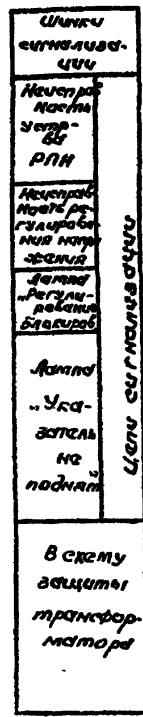 Шинки
сигнализа-
ции
Неисправ
ность
устр-
ва
РПН
Неисправ
ность ре-
гулирова
ния напр
яжения
Лампа
„Регули-
рование
блокиров
Лампа
„Ука-
затель
не
поднят"
Цепи сигнализации
В схему
защиты
трансфор-
матора